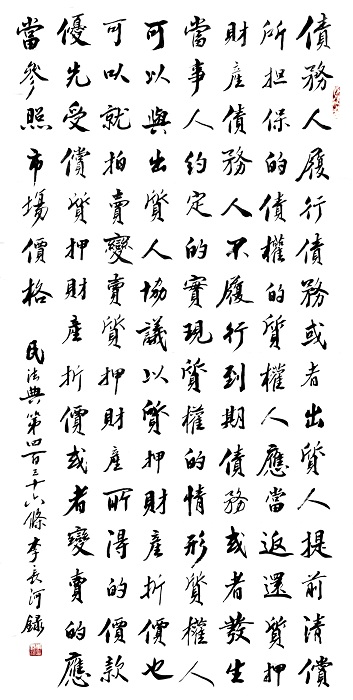 債務人履行債務或者出質人提前清償
所担保的債權的質權人應當返還質押
財產債務人不履行到期債務或者發生
當事人約定的實現質權的情形質權人
可以與出質人協議以質押財產折價也
可以就拍賣變賣質押財產所得的價款
優先受償質押財產折價或者變賣的應
當參照市場價格
民法典第四百三十六條 李長河錄